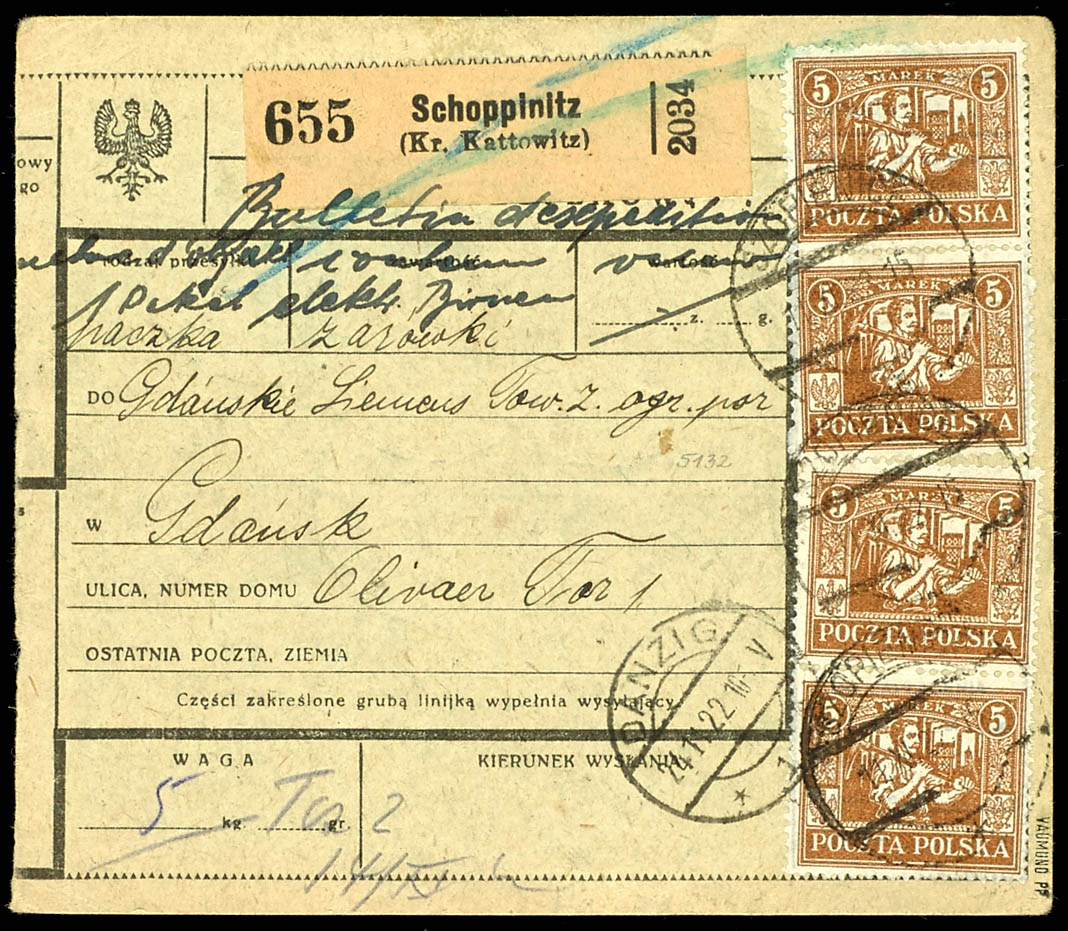 655 Schoppinitz 2034
(Kr. Kattowitz)
owy
go
Bulletin d'expedition
rodzaj przesyłki zawartość wartość
1 Paket elektr. Birnen
paczka żarówki z. g.
DO Gdańskie Siemens Tow. z. ogr. por
5132
W Gdańsk
ULICA, NUMER DOMU Olivaer Tor 1
OSTATNIA POCZTA, ZIEMIA
Części zakreślone grubą linijką wypełnia wysyłający.
WAGA KIERUNEK WYSŁANIA
5 kg. gr. 2
DANZIG
24.11.22.10-V
5 MAREK 5
POCZTA POLSKA
5 MAREK 5
POCZTA POLSKA
5 MAREK 5
POCZTA POLSKA
5 MAREK 5
POCZTA POLSKA